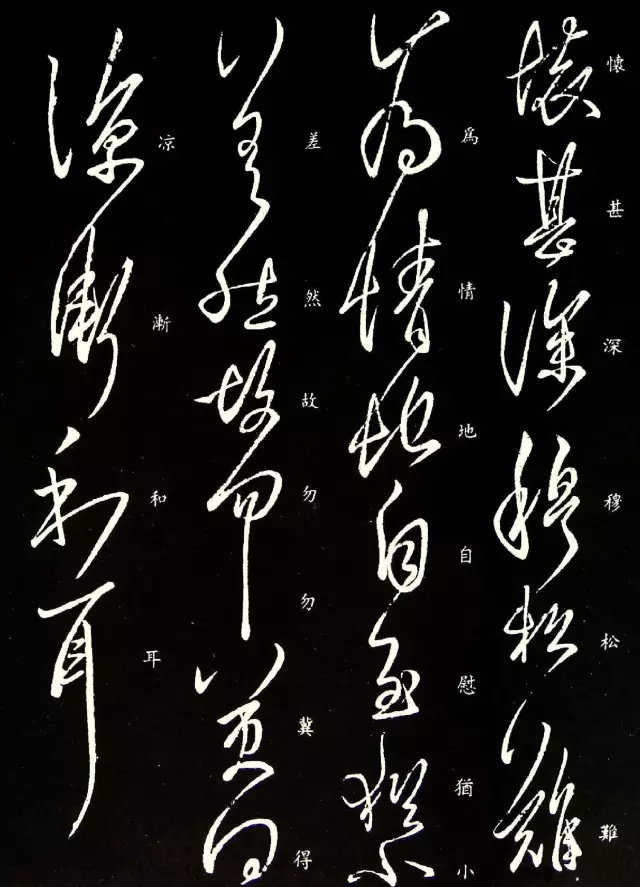 懷甚深穆松難
為情地自慰猶小
差然故勿勿冀得
凉漸和耳